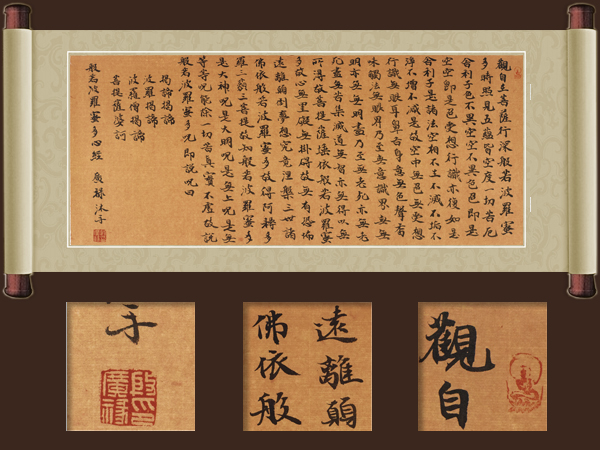 觀自在菩薩行深般若波羅蜜
多時照見五蘊皆空度一切苦厄
舍利子色不異空空不異色色即是
空空即是色受想行識亦復如是
舍利子是諸法空相不生不滅不垢不
淨不增不減是故空中無色無受想
行識無眼耳鼻舌身意無色聲香
味觸法無眼界乃至無意識界無無
明亦無無明盡乃至無老死亦無老
死盡無苦集滅道無智亦無得以無
所得故菩提薩埵依般若波羅蜜
多故心無罣礙無掛礙故無有恐怖
遠離顛倒夢想究竟涅槃三世諸
佛依般若波羅蜜多故得阿耨多
羅三藐三菩提故知般若波羅蜜多
是大神咒是大明咒是無上咒是無
等等咒能除一切苦真實不虛故說
般若波羅蜜多咒即說咒曰
揭諦揭諦
波羅揭諦
波羅僧揭諦
菩提薩婆訶
般若波羅蜜多心經 廣祿沐手
觀自
遠離顛
佛依般
手
殷印
廣祿